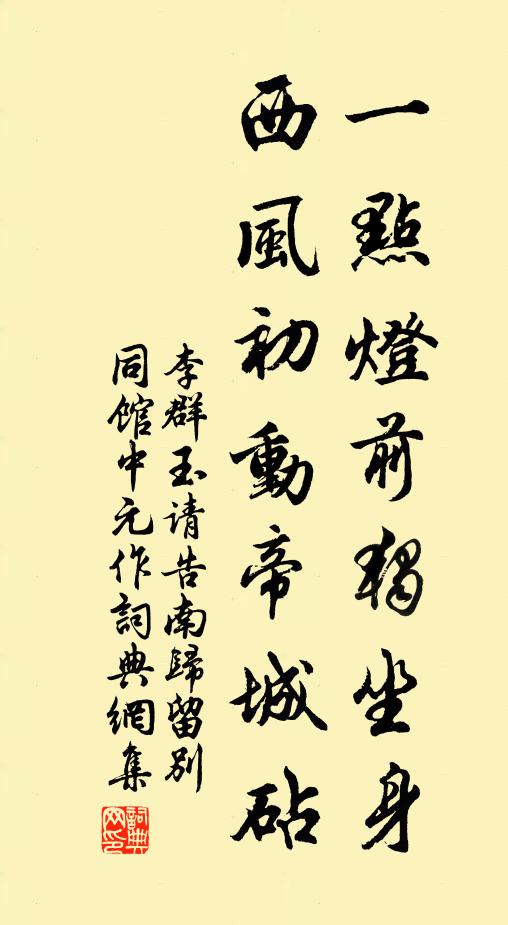 一點燈前獨坐身
西風初動帝城砧
李群玉请告南歸留別
同館中元作詞典網集
詞典
网印